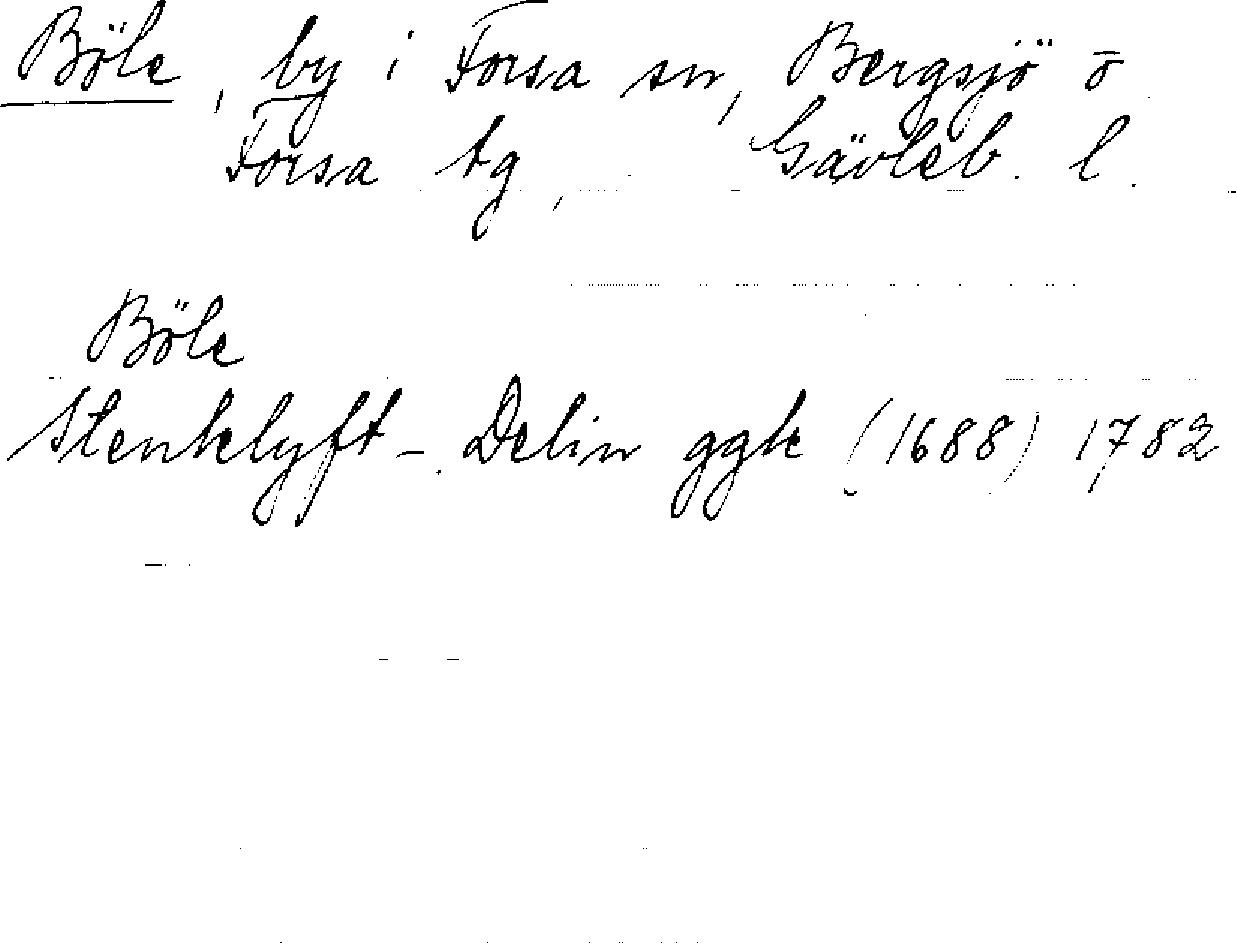 Böle, by i Forsa sn, Bergsjö o
Forsa tg, Gävleb. l.
Böle
Stenklyft-Delin ggk (1688) 1782